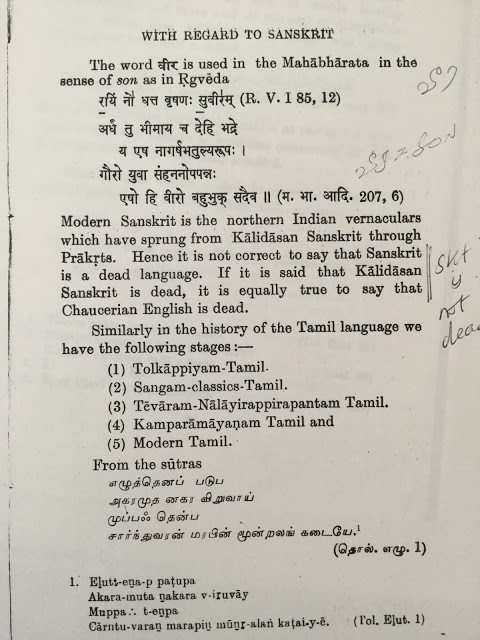 WITH REGARD TO SANSKRIT
The word वीर is used in the Mahābhārata in the
sense of son as in Ṛgvēda
रयिं नो॑ धत्त वृषणः सुवीर॑म् (R. V. I 85, 12)
अर्धं तु भीमाय च देहि भद्रे
य एष नागर्षभतुल्यरूपः ।
गौरो युवा संहननोपपन्नः
एषो हि वीरो बहुभुक् सदैव ॥ (म. भा. आदि. 207, 6)
வீர
வீர = SON
Modern Sanskrit is the northern Indian vernaculars
which have sprung from Kālidāsan Sanskrit through
Prākṛts. Hence it is not correct to say that Sanskrit
is a dead language. If it is said that Kālidāsan
Sanskrit is dead, it is equally true to say that
Chaucerian English is dead.
Skt
is
not
dead
Similarly in the history of the Tamil language we
have the following stages :—
(1) Tolkāppiyam-Tamil.
(2) Sangam-classics-Tamil.
(3) Tēvāram-Nālāyirappirapantam Tamil.
(4) Kamparāmāyaṇam Tamil and
(5) Modern Tamil.
From the sūtras
எழுத்தெனப் படுப
அகரமுத னகர விறுவாய்
முப்பஃ தென்ப
சார்ந்துவரன் மரபின் மூன்றலங் கடையே.¹
(தொல். எழு. 1)
1. Eḻutt-eṉa-p paṭupa
Akara-muta ṉakara v-iruvāy
Muppa∴ t-eṉpa
Cārntu-varaṉ marapiṉ mūṉr-alaṅ kaṭai-y-ē. (Tol. Eḻut. 1)